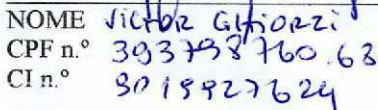 NOME Victor Ghiorzi
CPF n.º 393798760.63
CI n.º 3019927624